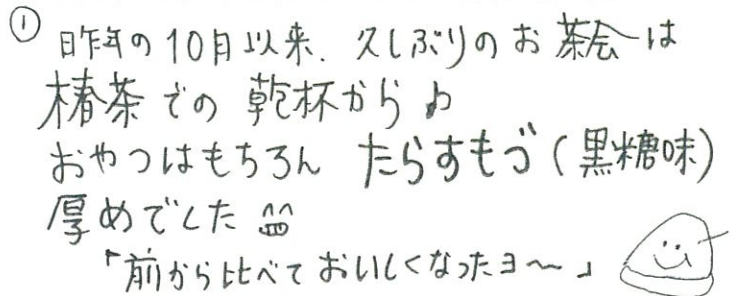 ① 昨年の10月以来、久しぶりのお茶会は
椿茶での乾杯から♪
おやつはもちろん たらすもづ(黒糖味)
厚めでした^皿^
「前から比べておいしくなったヨ～」